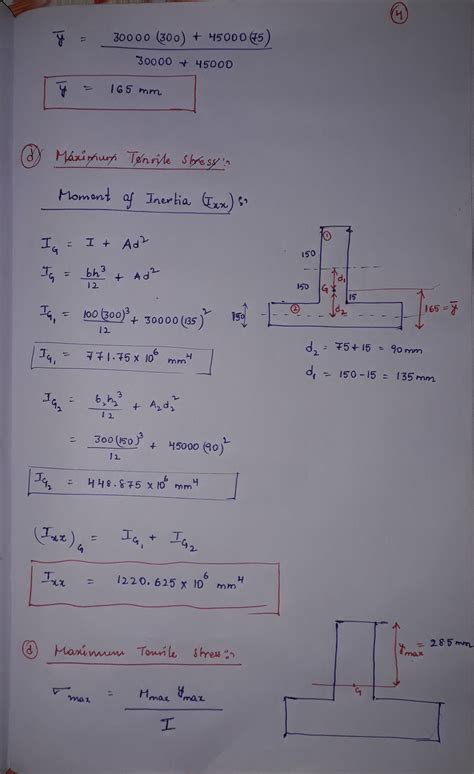 4
ȳ = 30000 (300) + 45000 (75) / 30000 + 45000
ȳ = 165 mm
d) Maximum Tensile Stress:-
Moment of Inertia (Ixx):-
IG = I + Ad²
IG = bh³/12 + Ad²
IG₁ = 100(300)³/12 + 30000(135)²
IG₁ = 771.75 × 10⁶ mm⁴
IG₂ = b₂h₂³/12 + A₂d₂²
= 300(150)³/12 + 45000(90)²
IG₂ = 448.875 × 10⁶ mm⁴
(Ixx)G = IG₁ + IG₂
Ixx = 1220.625 × 10⁶ mm⁴
1
150
150
G
d₁
15
d₂
2
150
165 = ȳ
d₂ = 75 + 15 = 90 mm
d₁ = 150 - 15 = 135 mm
d) Maximum Tensile Stress:-
σmax = Mmax ymax / I
ymax = 285 mm
G